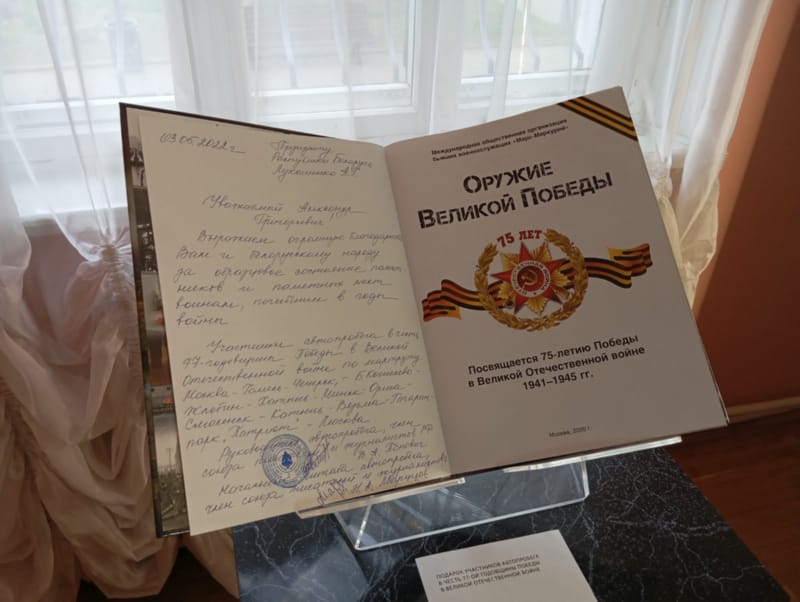 03.05.2022 г
Президенту
Республики Беларусь
Лукашенко А.Г.
Уважаемый Александр
Григорьевич!
Выражаем огромную благодарность
Вам и белорусскому народу
за образцовое состояние памят-
ников и памятных мест
воинам, погибшим в годы
войны
Участники автопробега в честь
77-годовщины Победы в Великой
Отечественной войне по маршруту
Москва - Гомель - Чечерск, -
Жлобин - Хатынь - Минск - Орша -
Смоленск - Катынь - Вязьма - Гагарин -
парк "Патриот" - Москва
Руководитель автопробега, член
союза и журналистов РФ
В.А.
Начальник штаба автопробега,
член союза писателей и журналистов
Международная общественная организация
бывших военнослужащих «Марс-Меркурий»
ОРУЖИЕ
ВЕЛИКОЙ ПОБЕДЫ
75 ЛЕТ
ОТЕЧЕСТВЕННАЯ ВОЙНА
Посвящается 75-летию Победы
в Великой Отечественной войне
1941–1945 гг.
Москва, 2020 г.
ПОДАРОК УЧАСТНИКОВ АВТОПРОБЕГА
В ЧЕСТЬ 77-ОЙ ГОДОВЩИНЫ ПОБЕДЫ
В ВЕЛИКОЙ ОТЕЧЕСТВЕННОЙ ВОЙНЕ